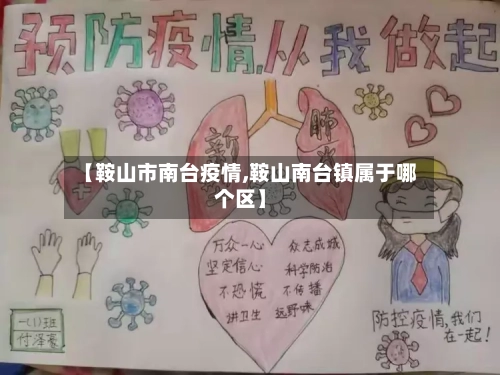 预防疫情,从我做起
新 肺
【鞍山市南台疫情,鞍山南台镇属于哪
个区】
万众一心
坚定信心
不恐慌
讲卫生
众志成城
科学防治
不传播
远野味
一(1)班
付泽豪
防控疫情,我们
在一起!